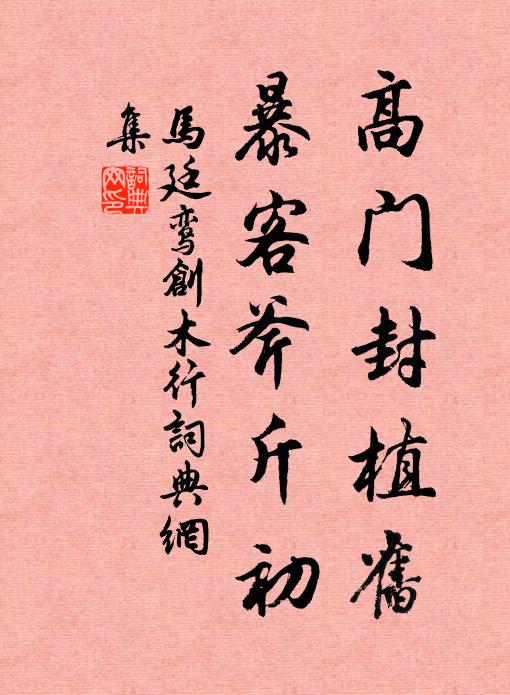 高门封植舊
暴客斧斤初
馬廷鸞創木行詞典網
集
詞典网印